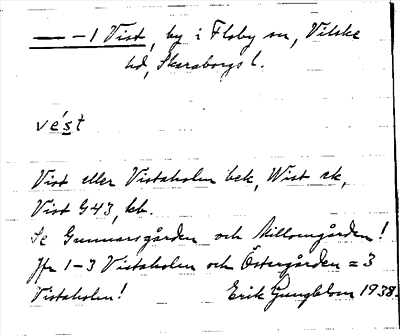 — – 1 Vist, by i Floby sn, Vilske
hd, Skaraborgs l.
vést
Vist eller Vistaholm bek, Wist ek,
Vist G43, kb.
Se Gunnarsgården och Millomgården!
Jfr 1–3 Vistaholm och Östergården = 3
Vistaholm! Erik Ljungblom 1938.